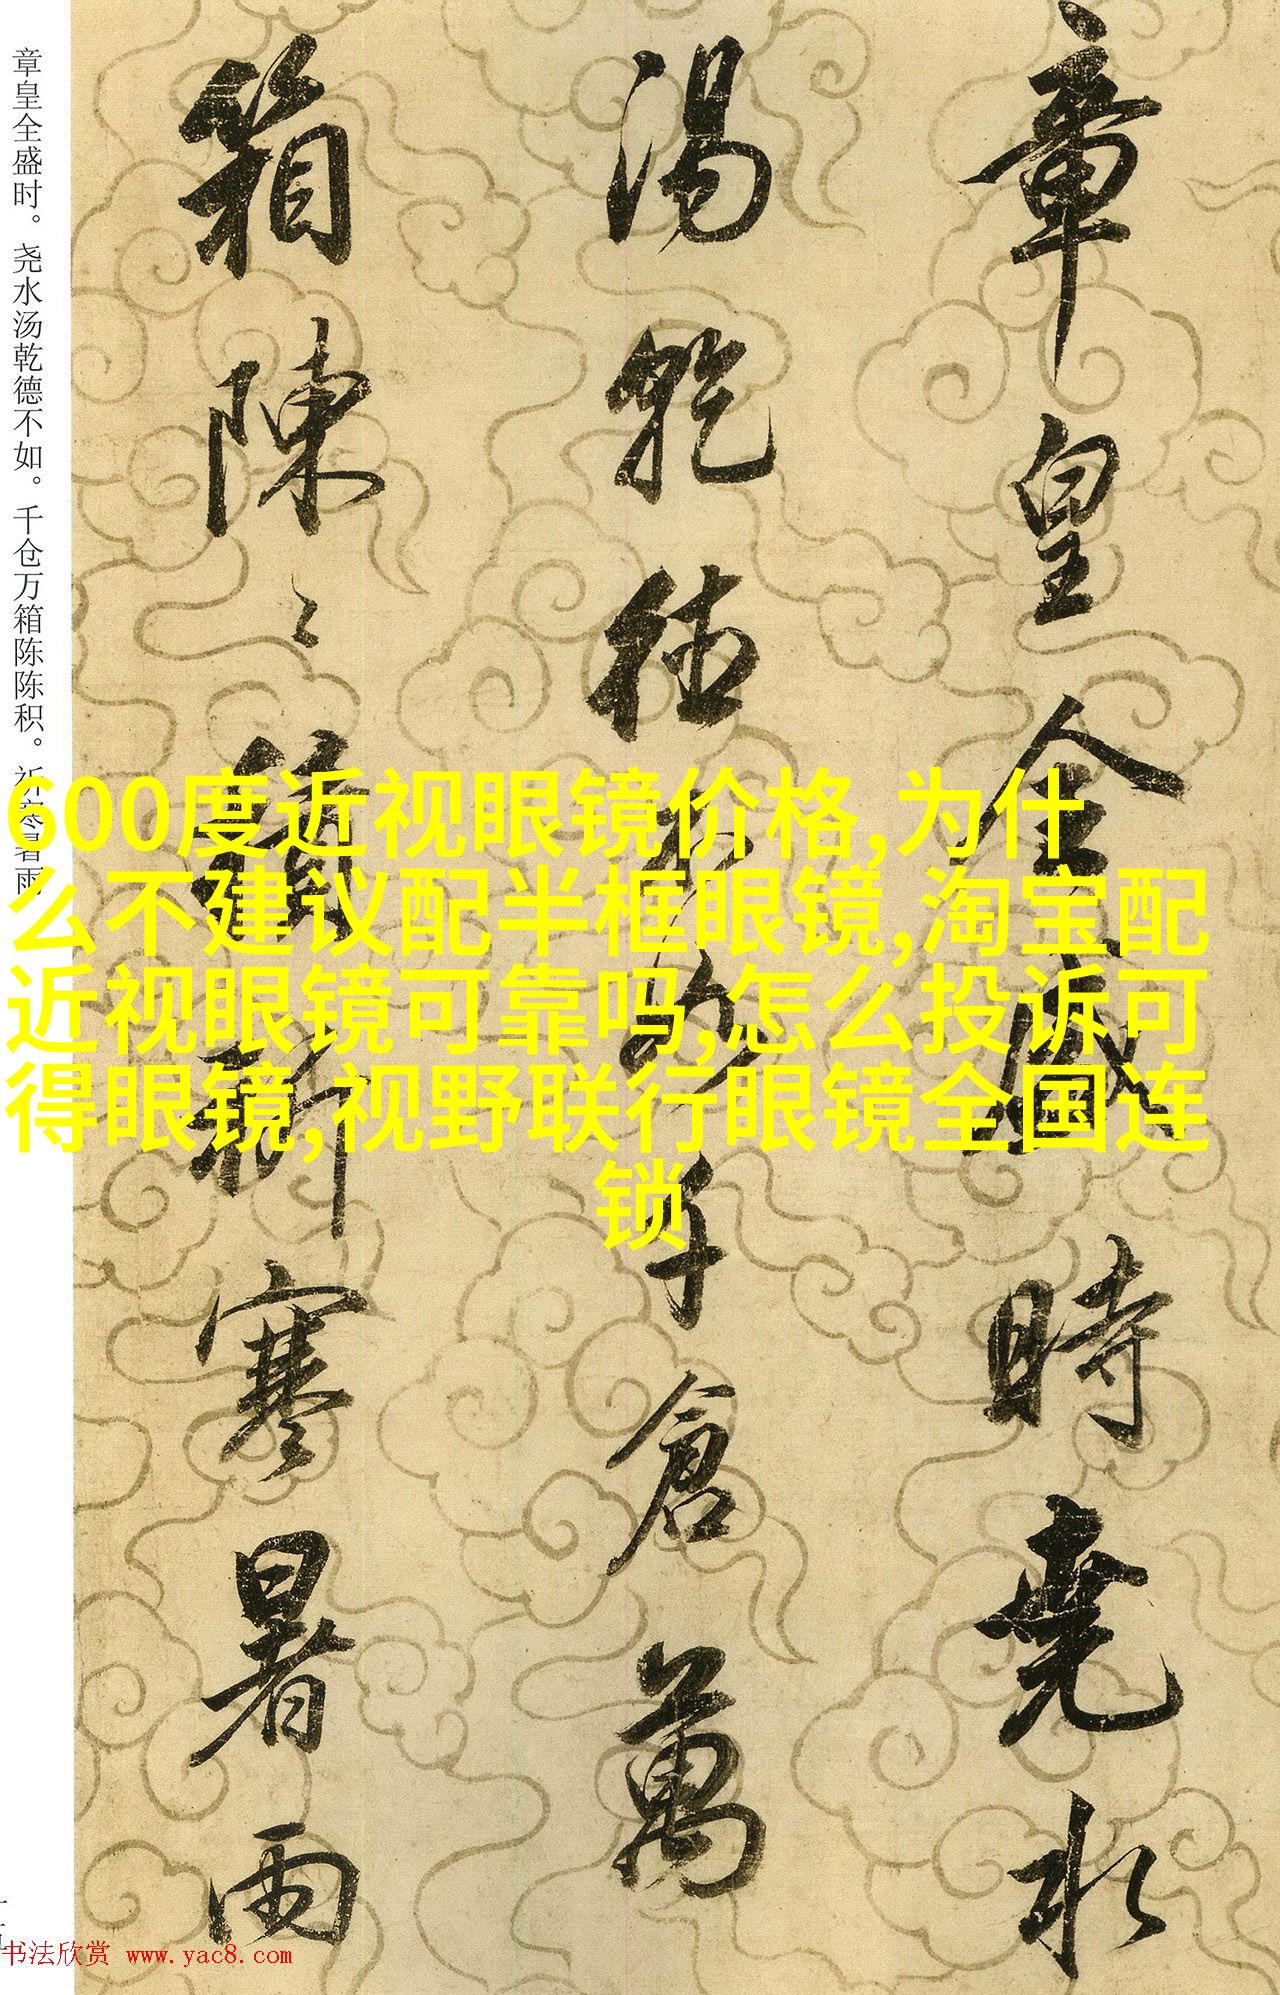 章皇全盛時堯水
湯乾德不如千倉萬
箱陳〻積祈寒暑雨
章皇全盛时。尧水汤乾德不如。千仓万箱陈陈积。祈寒暑雨
600度近视眼镜价格,为什
么不建议配半框眼镜,淘宝配
近视眼镜可靠吗,怎么投诉可
得眼镜,视野联行眼镜全国连
锁
书法欣赏 www.yac8.com